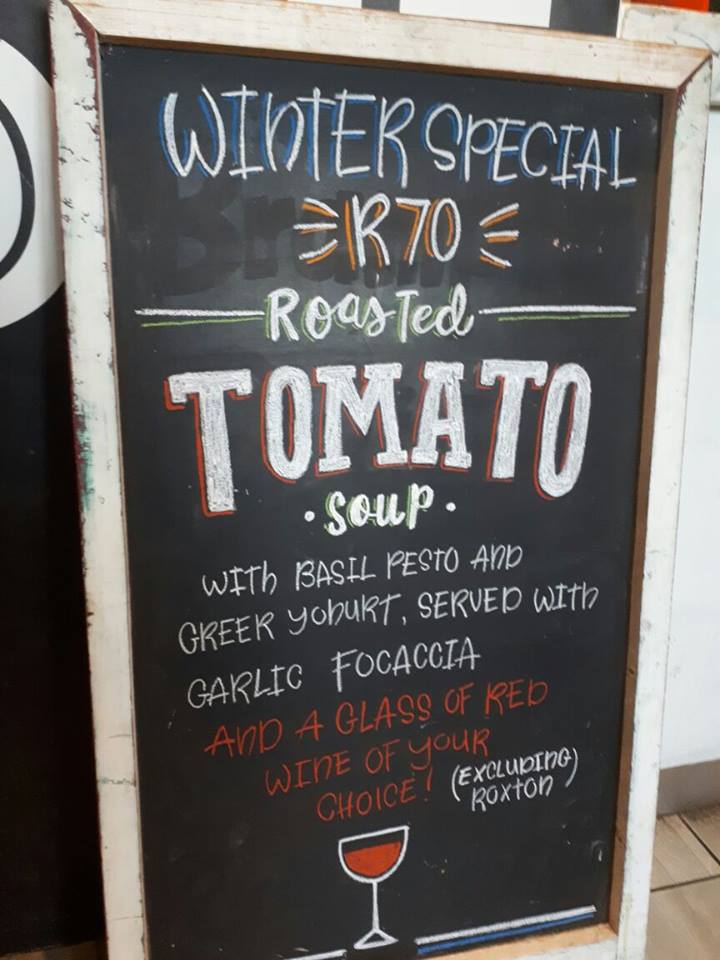 WINTER SPECIAL
R70
Roasted
TOMATO
· soup ·
WITH BASIL PESTO AND
GREEK YOHURT, SERVED WITH
GARLIC FOCACCIA
AND A GLASS OF RED
WINE OF YOUR
CHOICE! (EXCLUDING)
ROXTON